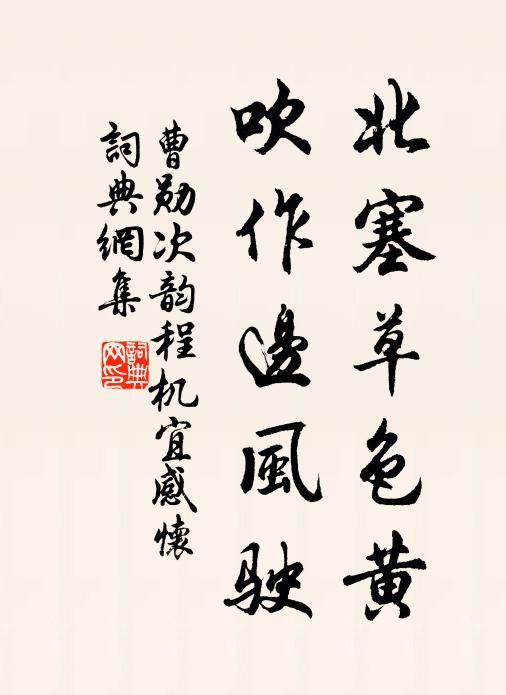 北塞草色黄
吹作邊風駛
曹勋次韵程机宜感懷
詞典網集
詞典
网印